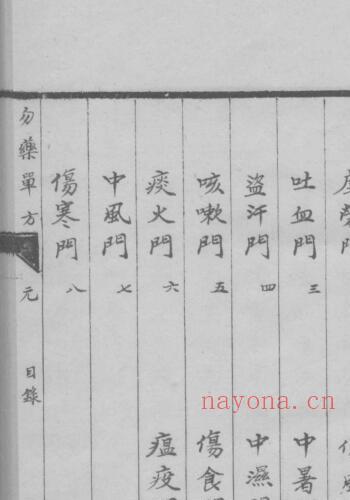 吐血門 三
盜汗門 四
咳嗽門 五
痰火門 六
中風門 七
傷寒門 八
中暑
中濕
傷食
瘟疫
勿藥單方
元 目錄
nayona.cn